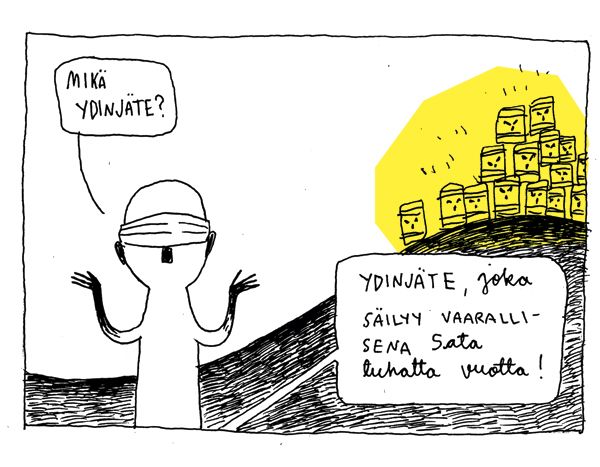 MIKÄ
YDINJÄTE?
YDINJÄTE, joka
SÄILYY VAARALLI-
SENA Sata
tuhatta vuotta!